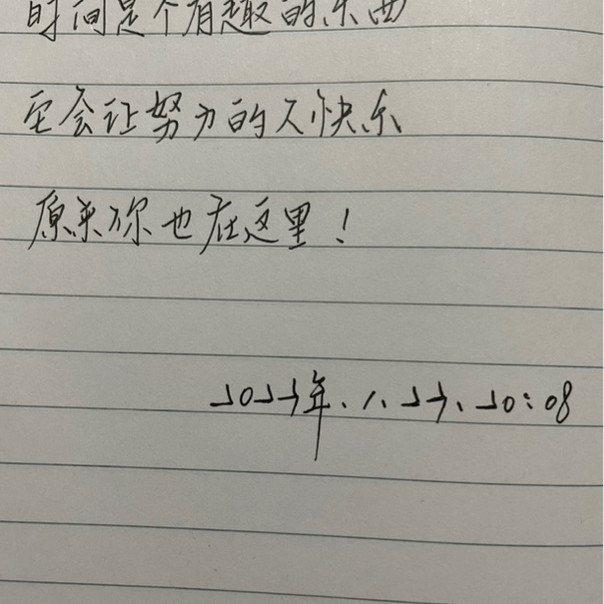 时间是个有趣的东西
它会让努力的人快乐
原来你也在这里！
2023年、1、23、20:08